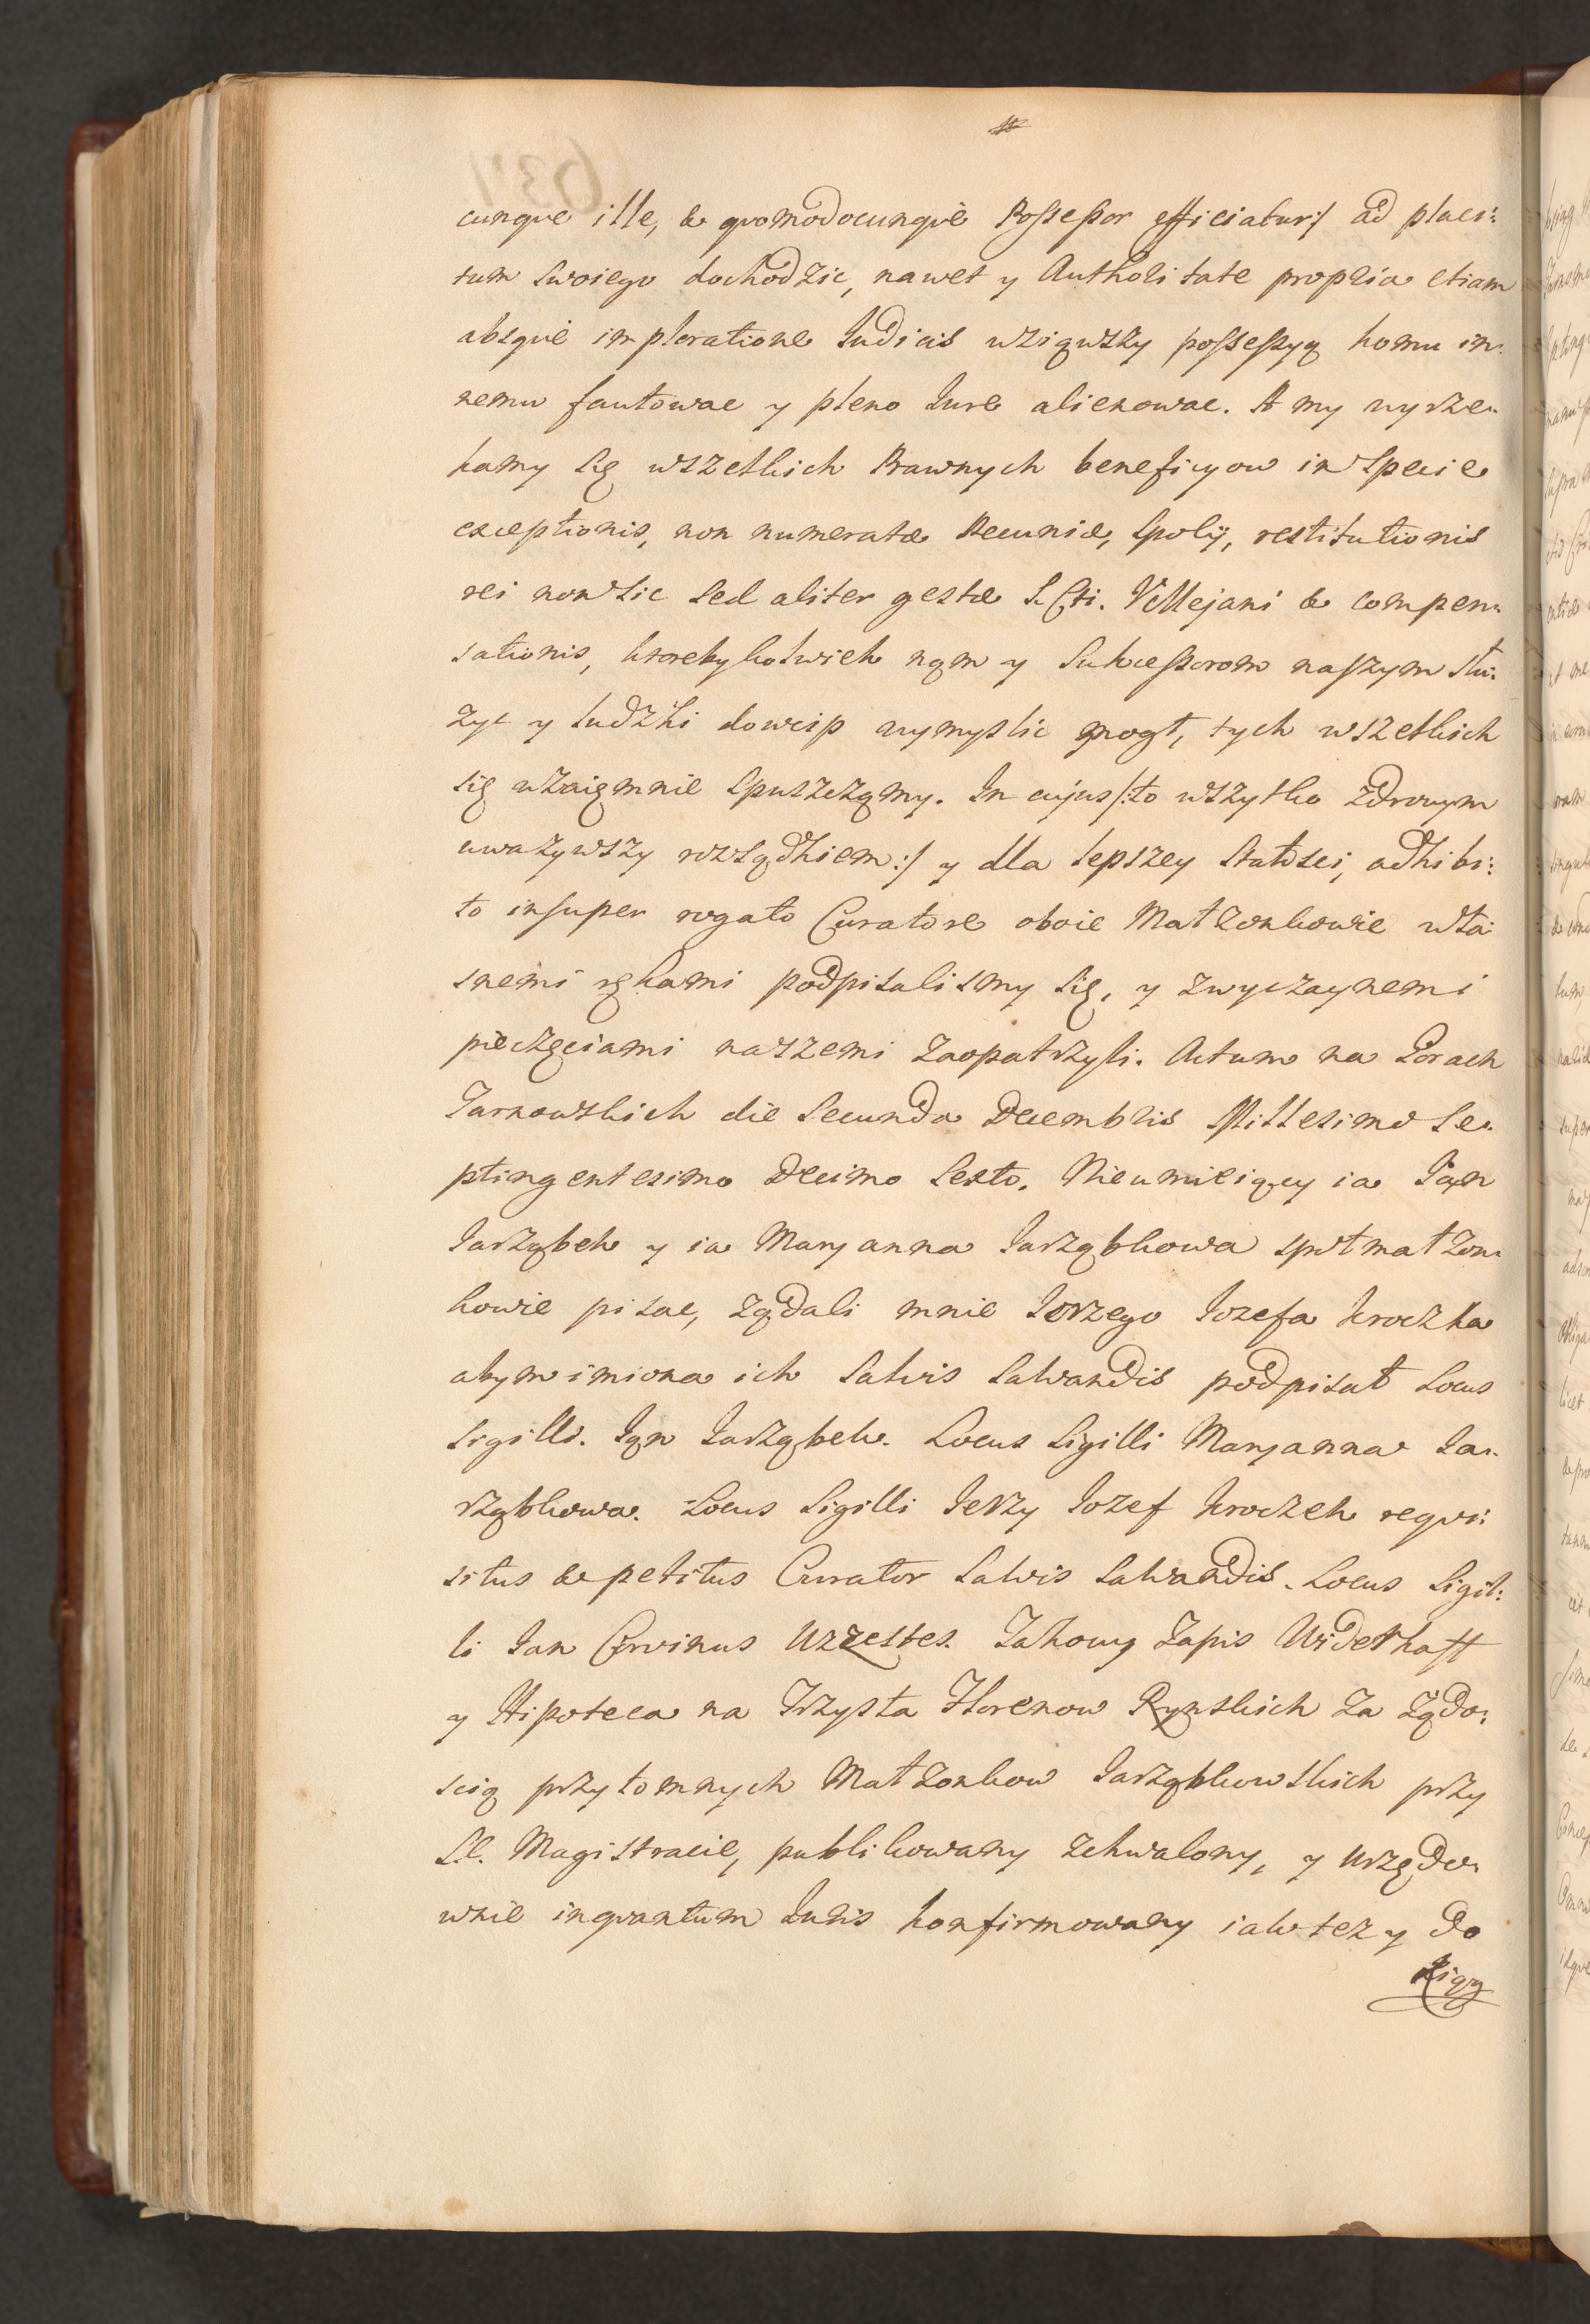 cunque ille, & qvomodocunqvè Possessor efficiatur:/ ad placi:
tum swoiego dochodzic, nawet y Authoritate propria etiam
absqvè imploratione Judicis wziąwszy possessyą komu in:
nemu fantowac y pleno Jure alienowac. A my wyrze:
kamy się wszelkich Prawnych beneficyow in specie
exceptionis, non numeratæ Pecuniæ, spolij, restitutionis
rei non sic sed aliter gestæ S. Cti. Vellejani & compen:
sationis, ktorekykolwiek nąm y Sukcessorom naszym słu:
zyc y ludzki dowcip wymyslic mogł, tych wszelkich
się wzaięmnie spuszcząmy. In cujus /:to wszytko zdrowym
uwazywszy rozsądkiem:/ y dla lepszey stałosci, adhibi:
to insuper rogato Curatore oboie Małzonkowie wła:
snemi rękami podpisalismy się, y zwyczaynemi
pieczęciami naszemi zaopatrzyli. Actum na Gorach
Tarnowskich die Secunda Decembris Millesimo Se:
ptingentesimo Decimo Sexto. Nieumieiący ia Ian
Iarząbek y ia Maryanna Iarząbkowa społmałzon:
kowie pisac, ządali mnie Ierzego Iozefa Kroczka
abym imiona ich salvis salvandis podpisał Locus
Sigilli. Ian Iarząbek. Locus Sigilli Maryanna Ia:
rząbkowa. Locus Sigilli Ierzy Iozef Kroczek reqvi:
situs & petitus Curator salvis salvandis. Locus Sigil:
li Ian Corvinus Uzzestes. Takowy Zapis Widerkaff
y Hipoteca na Trzysta Florenow Rynskich za ządo:
scią przytomnych Małzonkow Iarząbkowskich przy
S.C. Magistracie, publikowany zchwalony, y urzędo:
wnie inqvantum Iuris konfirmowany iak tez y do
Xiąg